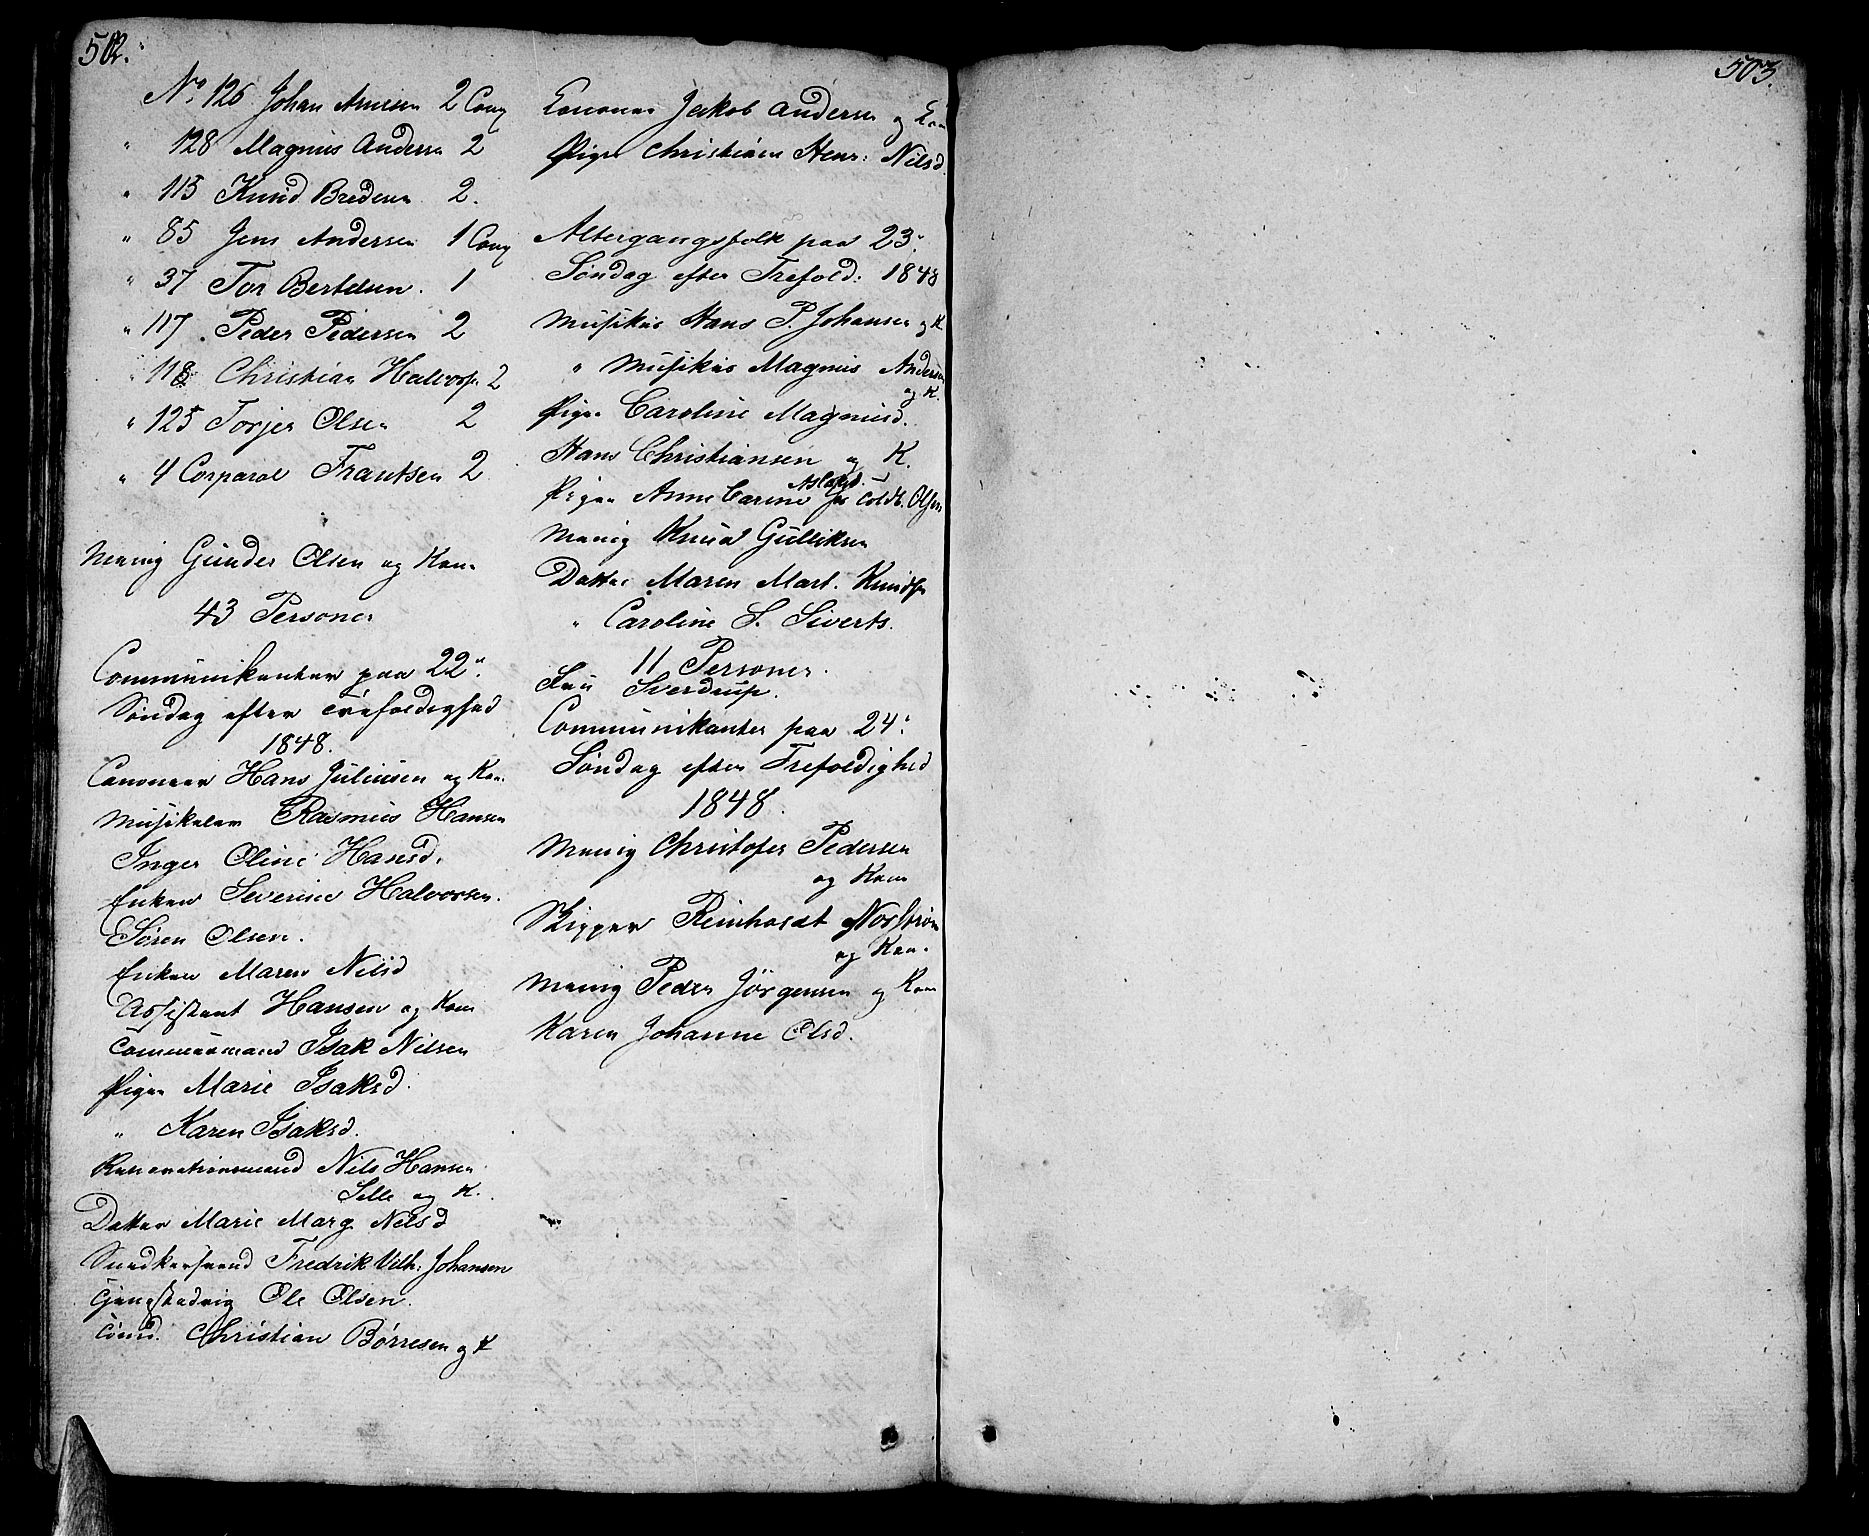 502.
No 126 Johan Arnesen 2 Comp
" 128 Magnus Andersen 2
" 115 Knud Bredesen 2.
" 85 Jens Andersen 1 Comp
" 37 Tor Bertelsen. 1
" 117 Peder Pedersen 2
" 118 Christian Halvors. 2
" 125 Torjer Olsen 2
" 4 Corporal Frantsen 2
Menig Gunder Olsen og Kone
43 Personer
Communikanter paa 22de
Søndag efter Trefoldighed
1848.
Canoneer Hans Juliussen og Kone
Musikeer Rasmus Hansen
Inger Oline Hansd.
Enken Severine Halvorsen.
Søren Olsen.
Enken Maren Nilsd
Assistent Hansen og Kone
Isak Nilsen
Pigen Marie Isaksd.
" Karen Isaksd.
Renovationsmand Nils Hansen
og K.
Datter Marie Marg Nilsd
Snedkersvend Fredrik Vilh: Johansen
Ole Olsen.
Christian Børresen og K
Canoneer Jakob Andersen og Kone
Pigen Christiane Henr: Nilsd.
Altergangsfolk paa 23de
Søndag efter Trefold: 1848
Musikus Hans P. Johansen og K
" Musikus Magnus Andersen
og K.
Pigen Caroline Magnusd.
Hans Christiansen og K.
Aslaksd.
Pigen Anne Carine Olsen
Menig Knud Gulliksen
Datter Maren Mart. Knuds
" Caroline S. Siverts.
11 Personer.
Fru Sverdrup.
Communikanter paa 24de
Søndag efter Trefoldighed
1848.
Menig Christofer Pedersen
og Kone
Skipper Reinholdt Norstrøm
og Kone
Menig Peder Jörgensen og Kone
Karen Johanne Olsd.
503.